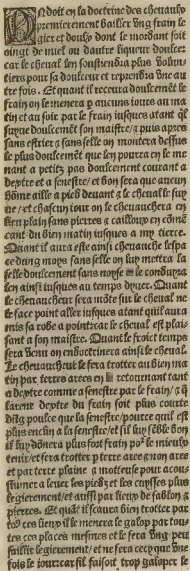 On doit en la doctrine des chevaulx
premierement bailler ung frain le
gier et doulx dont le mordant soit
oingt de miel ou dautre liqueur doulce
car le cheval sen souffrera plus voluntiers
pour sa doulceur et reprendra une au
tre fois. Et quant il recevra doulcement le
frain on le menera p aucuns iours au ma
tin et au soir par le frain iusques atant ql
suyve doulcement son maistre / et puis apres
sans estrier et sans selle on montera dessus
le plus doulcement que len pourra en le me
nant a petitz pas doulcement tournant a
dextre et a senestre / et bon sera que aucun
home aille a pied devant et le cheval le suy
ve / et chascun iour on le chevauchera en
lieu plain sans pierres et cailloux en comē
cant du bien matin iusques a my tierce.
Quant il aura este ainsi chevauche lespa
ce dung moys sans selle on luy mettra la
selle doulcement sans noyse et le conduyra
len ainsi iusques au temps dyver. Quant
le chevaucheur sera mōte sur le cheval ne
le face point aller iusques atant quil aura
mis sa robe a point / car le cheval est plai
sant a son maistre. Quant le froit temps
sera venu on endoctrinera ainsi le cheval.
Le chevaucheur le fera trotter au bien ma
tin par terres arees en retournant tant
a dextre comme a senestre par le frain / et q
larene dextre du frain soit plus courte
dūg pouce que la senestre / pource quil est
plus enclin a la senestre / et sil luy sēble bon
il luy dōnera plus fort frain po² le mieulx
tenir / et sera trotter p terre aree et non aree
et par terre plaine et motteuse pour acou
stumer a lever les piedz et les cuysses plus
legierement / et aussi par lieux de sablon et
pierres. Et quāt il scaura bien trotter par
to⁹ ces lieux il le menera le galop par tous
ces places mesmes et le fera ūng peu
saillir legierement / et ne fera cecy que une
fois le iour: car sil faisoit trop galoper le